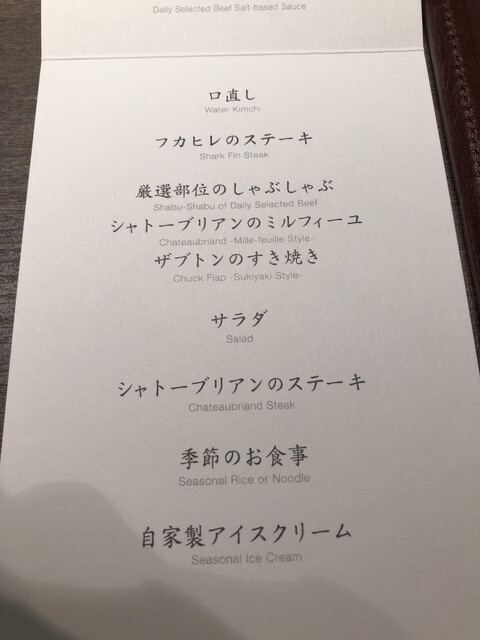 Daily Selected Beef Salt-based Sauce
口直し
Water Kimchi
フカヒレのステーキ
Shark Fin Steak
厳選部位のしゃぶしゃぶ
Shabu-Shabu of Daily Selected Beef
シャトーブリアンのミルフィーユ
Chateaubriand -Mille-feuille Style-
ザブトンのすき焼き
Chuck Flap -Sukiyaki Style-
サラダ
Salad
シャトーブリアンのステーキ
Chateaubriand Steak
季節のお食事
Seasonal Rice or Noodle
自家製アイスクリーム
Seasonal Ice Cream